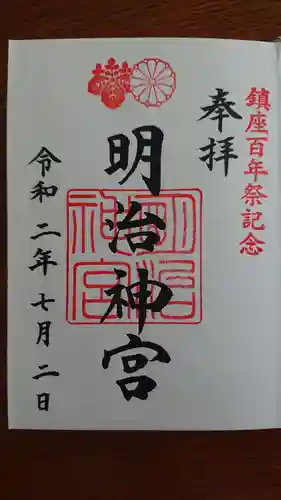 鎮座百年祭記念
奉拝
明治神宮
明治神宮
令和二年七月二日